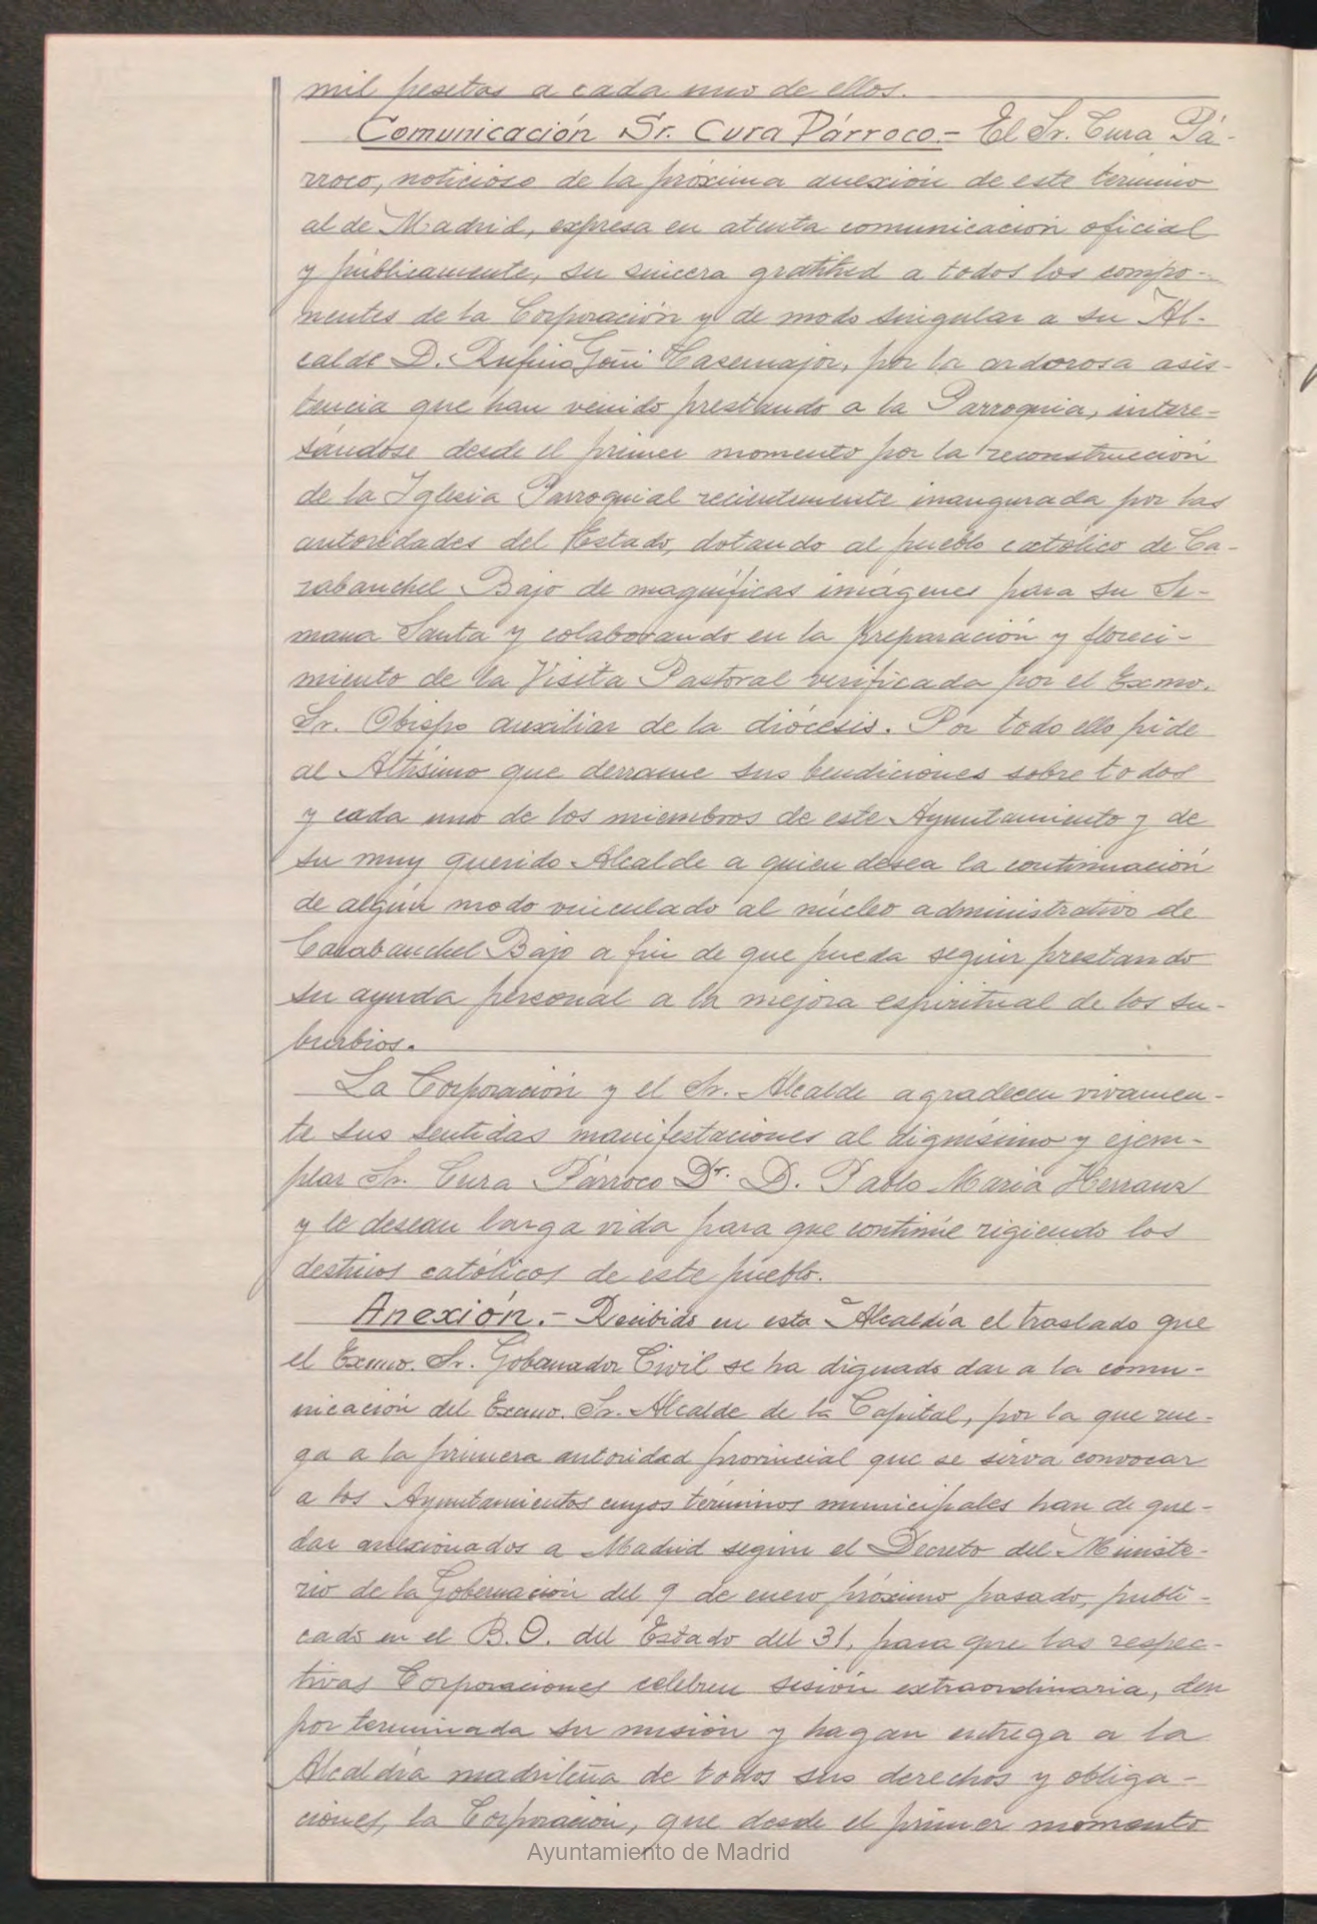 mil pesetas a cada uno de ellos.
Comunicación Sr. Cura Párroco.- El Sr. Cura Pá-
rroco, noticioso de la próxima anexión de este término
al de Madrid, expresa en atenta comunicación oficial
y públicamente, su sincera gratitud a todos los compo-
nentes de la Corporación y de modo singular a su Al-
calde D. Rufino Goñi Casemajor, por la ardorosa asis-
tencia que han venido prestando a la Parroquia, intere-
sándose desde el primer momento por la reconstrucción
de la Iglesia Parroquial recientemente inaugurada por las
autoridades del Estado, dotando al pueblo católico de Ca-
rabanchel Bajo de magníficas imágenes para su Se-
mana Santa y colaborando en la preparación y floreci-
miento de la Visita Pastoral verificada por el Exmo.
Sr. Obispo auxiliar de la diócesis. Por todo ello pide
al Altísimo que derrame sus bendiciones sobre todos
y cada uno de los miembros de este Ayuntamiento y de
su muy querido Alcalde a quien desea la continuación
de algún modo vinculado al núcleo administrativo de
Carabanchel Bajo a fin de que pueda seguir prestando
su ayuda personal a la mejora espiritual de los su-
burbios.
La Corporación y el Sr. Alcalde agradecen vivamen-
te sus sentidas manifestaciones al dignísimo y ejem-
plar Sr. Cura Párroco Dr. D. Pablo María Herranz
y le desean larga vida para que continúe rigiendo los
destinos católicos de este pueblo.
Anexión.- Recibido en esta Alcaldía el traslado que
el Excmo. Sr. Gobernador Civil se ha dignado dar a la comu-
nicación del Excmo. Sr. Alcalde de la Capital, por la que rue-
ga a la primera autoridad provincial que se sirva convocar
a los Ayuntamientos cuyos términos municipales han de que-
dar anexionados a Madrid según el Decreto del Ministe-
rio de la Gobernación del 9 de enero próximo pasado, publi-
cado en el B.O. del Estado del 31, para que las respec-
tivas Corporaciones celebren sesión extraordinaria, den
por terminada su misión y hagan entrega a la
Alcaldía madrileña de todos sus derechos y obliga-
ciones, la Corporación, que desde el primer momento
Ayuntamiento de Madrid